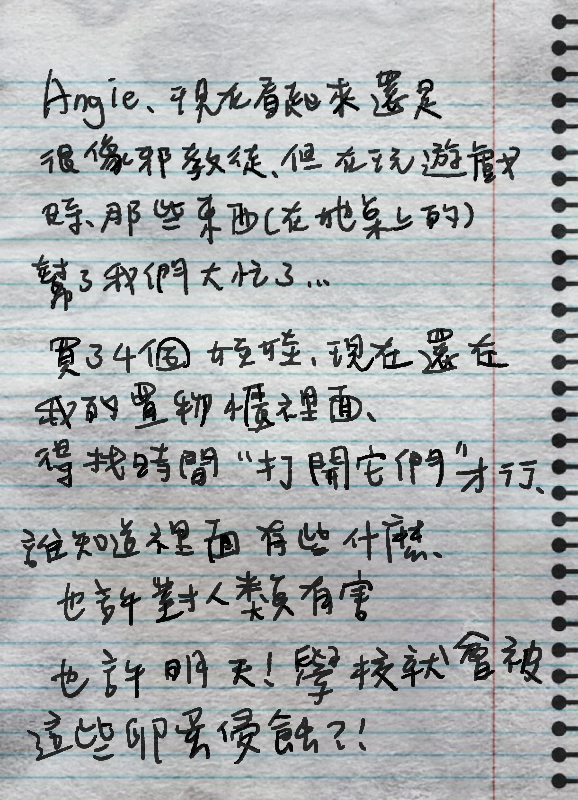 Angie、現在看起來還是
很像邪教徒、但在玩遊戲
時、那些東西(在地桌上的)
幫了我們大忙了...
買了4個娃娃、現在還在
我的置物櫃裡面、
得找時間“打開它們”才行、
誰知道裡面有些什麼、
也許對人類有害
也許明天!學校就會被
這些卵蛋侵蝕?!